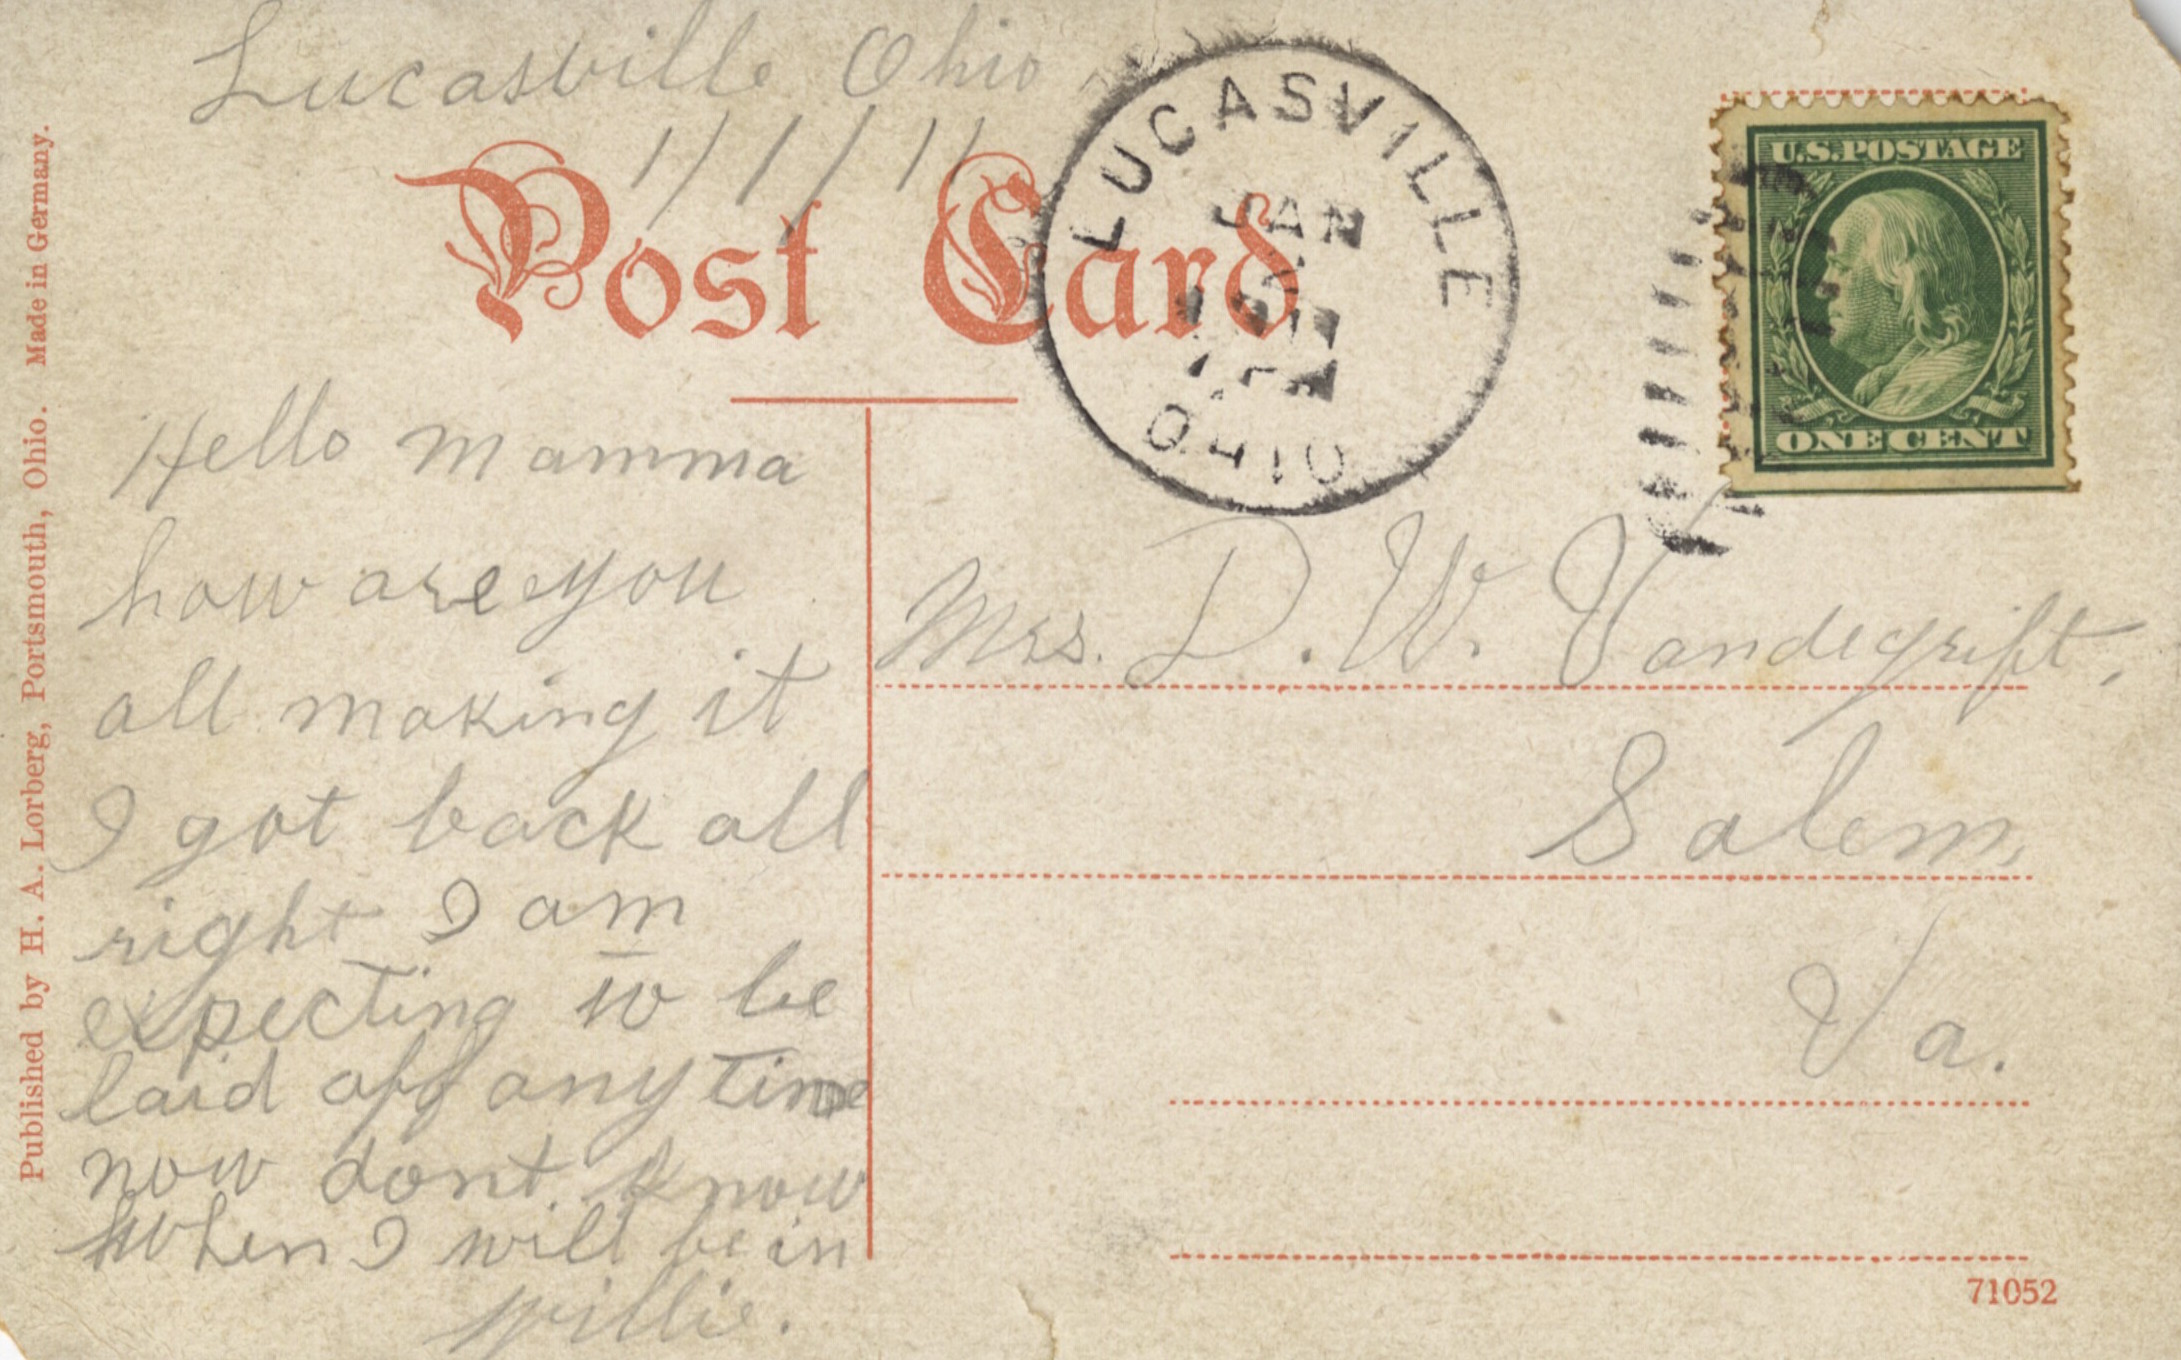 Lucasville Ohio
1/1/11
Post Card
LUCASVILLE
JAN
OHIO
U.S.POSTAGE
ONE CENT
Hello Mamma
how are you
all making it
I got back all
right I am
expecting to be
laid off any time
now dont know
When I will be in
Willie.
Mrs. D. W. Vandegrift,
Salem,
Va.
71052
Published by H. A. Lorberg, Portsmouth, Ohio. Made in Germany.